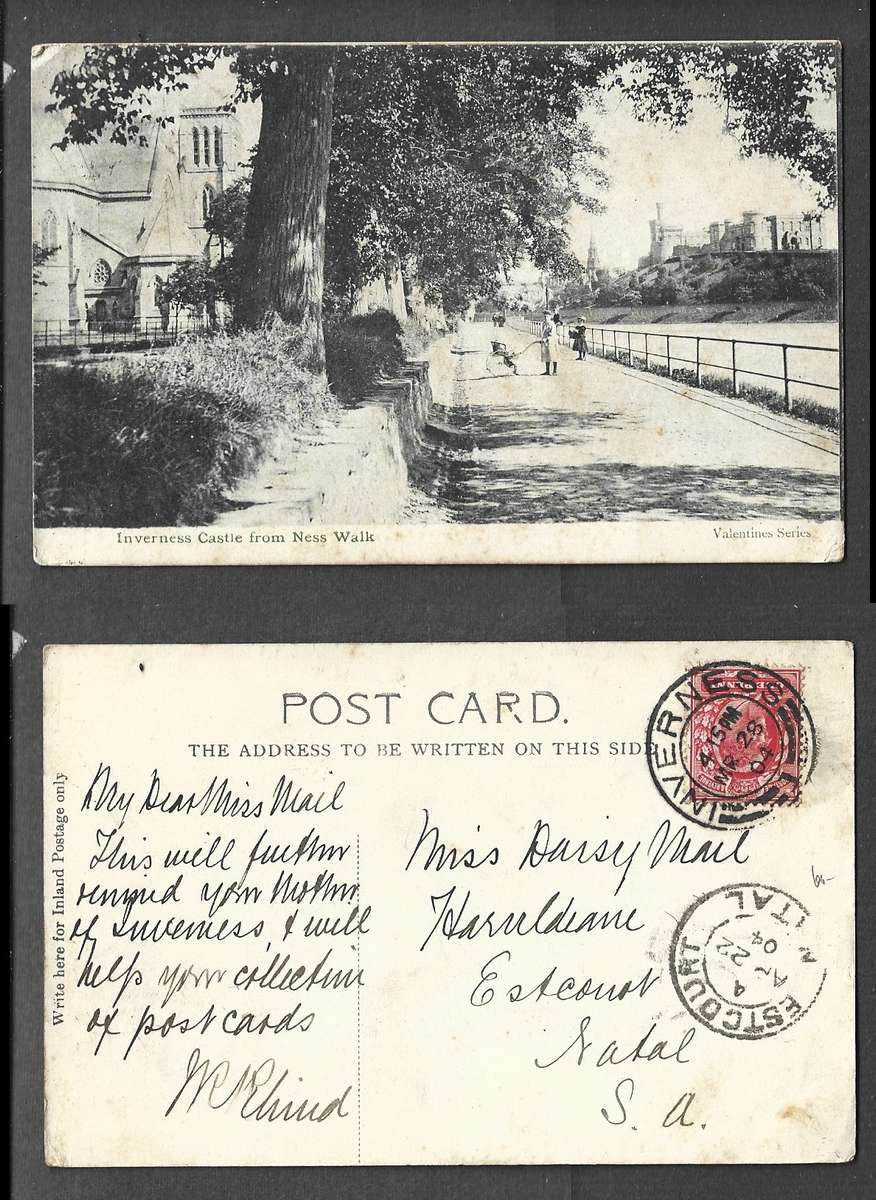 Inverness Castle from Ness Walk
Valentines Series
POST CARD.
THE ADDRESS TO BE WRITTEN ON THIS SIDE
Write here for Inland Postage only
My Dear Miss Mail
This will further
remind your Mother
of Inverness, & will
help your collection
of post cards
Rhind
Miss Daisy Mail
Estcourt
Natal
S. A.
INVERNESS
4 15 PM
MR 28
04
ESTCOURT NATAL
A
AP 22
04